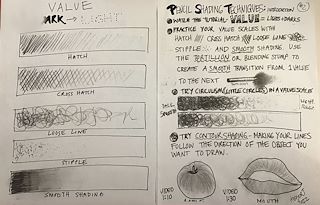 VALUE
DARK → LIGHT
HATCH
CROSS HATCH
LOOSE LINE
STIPPLE
SMOOTH SHADING
PENCIL SHADING TECHNIQUES: INTRODUCTION
WATCH THE TUTORIAL - VALUE = LIGHTS & DARKS
PRACTICE YOUR VALUE SCALES WITH
HATCH CROSS HATCH LOOSE LINE
STIPPLE AND SMOOTH SHADING. USE
THE TORTILLION OR BLENDING STUMP TO
CREATE A SMOOTH TRANSITION FROM 1 VALUE
TO THE NEXT
TRY CIRCULISM (LITTLE CIRCLES) IN A VALUE SCALE
TRY CONTOUR SHADING - MAKING YOUR LINES
FOLLOW THE DIRECTION OF THE OBJECT YOU
WANT TO DRAW.
VIDEO
1:10
VIDEO
1:30
MOUTH